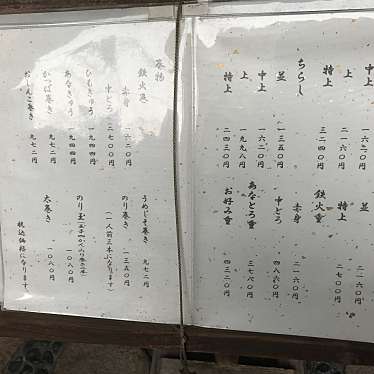 中上 一六二〇円
上
特上 三二四〇円
ちらし
並 一三五〇円
中上 一六二〇円
上 一九九八円
特上 二四三〇円
並
特上 二七〇〇円
鉄火重
赤身 二一六〇円
中とろ
あなとろ重 三七八〇円
お好み重 四三二〇円
巻物
鉄火巻
赤身 一六二〇円
中とろ 二七〇〇円
ひもきゅう 一九四四円
あなきゅう 九四四円
かっぱ巻き 九七二円
おしんこ巻き 九七二円
うめじそ巻き 九七二円
のり巻き 一三五〇円
(一人前三本になります)
のり玉 一〇八〇円
太巻き 一〇八〇円
税込価格になります。